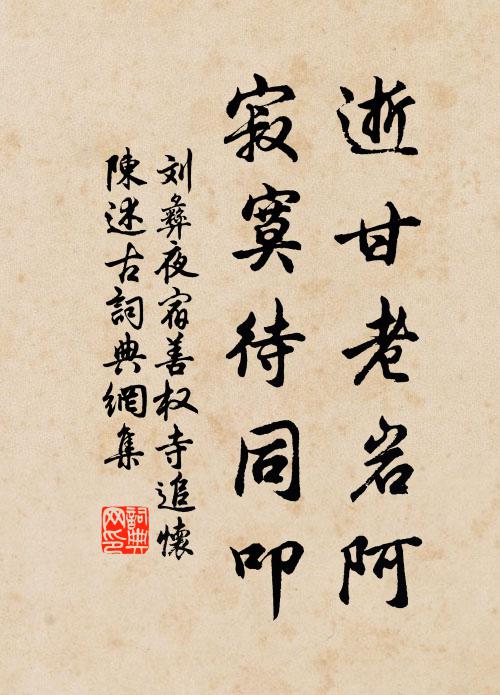 逝甘老岩阿
寂寞待同叩
刘彝夜宿善权寺追懷
陳述古詞典網集
詞典
网印